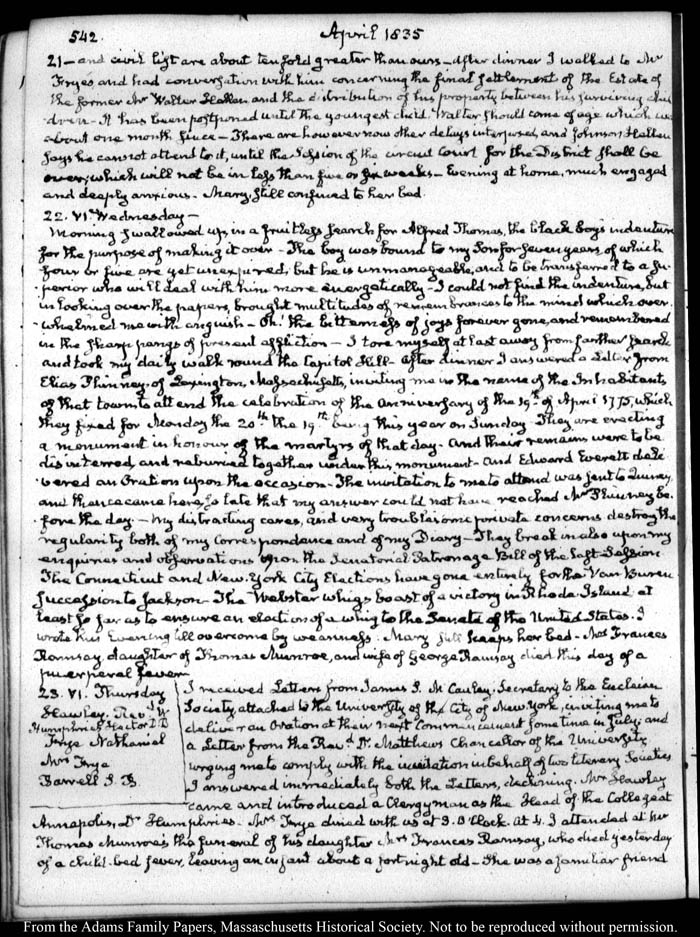 542.
April 1835
21 — and civil list are about tenfold greater than ours — After dinner I walked to Mr
Frye's and had conversation with him concerning the final settlement of the Estate of
the former Mr Walter Hellen and the distribution of his property between his surviving chil
dren — It has been postponed until the youngest child Walter should come of age which was
about one month since — There are however now other delays interposed, and Johnson Hellen
says he cannot attend to it, until the Session of the circuit Court for the District shall be
over; which will not be in less than five or six weeks — Evening at home, much engaged
and deeply anxious. Mary, still confined to her bed.
22. VI. Wednesday —
Morning swallowed up, in a fruitless search for Alfred Thomas, the black boys indenture
for the purpose of making it over — The boy was bound to my Son for seven years of which
four or five are yet unexpired; but he is unmanageable, and to be transferred to a Su-
perior who will deal with him more energetically — I could not find the indenture, but
in looking over the papers, brought multitudes of remembrances to the mind which over-
whelmed me with anguish — Oh! the bitterness of joys forever gone, and remembered
in the sharp pangs of present affliction — I tore myself at last away from further search
and took my daily walk round the Capitol Hill — After dinner I answered a Letter from
Elias Phinney, of Lexington, Massachusetts, inviting me in the name of the Inhabitants
of that town to attend the celebration of the anniversary of the 19th of April 1775, which
they fixed for Monday the 20th the 19th being this year on Sunday — They are erecting
a monument in honour of the martyrs of that day — And their remains were to be
disinterred, and reburied together under this monument — and Edward Everett deli-
vered an Oration upon the occasion — The invitation to me to attend was sent to Quincy,
and thence came here, so late that my answer could not have reached Mr Phinney be-
fore the day — My distracting cares, and very troublesome private concerns destroy the
regularity both of my Correspondence and of my Diary — They break in also upon my
enquiries and observations upon the Senatorial Patronage Bill of the last Session.
The Connecticut and New-York City Elections have gone entirely for the Van Buren
succession to Jackson — The Webster whigs boast of a victory in Rhode Island, at
least so far as to ensure an election of a whig to the Senate of the United States. I
wrote this Evening till overcome by weariness. Mary still keeps her bed — Mrs Frances
Ramsay daughter of Thomas Munroe, and wife of George Ramsay died this day of a
puerperal fever.
23. VI. Thursday
Hawley, Revd W.
Humphries Hector DD
Frye Nathaniel
Mrs Frye
Farrell J. B.
I received Letters from James S. McCauley, Secretary to the Eucleian
Society attached to the University of the City of New York, inviting me to
deliver an Oration at their next Commencement some time in July; and
a Letter from the Revd Dr Matthews Chancellor of the University,
urging me to comply with the invitation in behalf of two literary Societies
I answered immediately both the Letters, declining. Mr Hawley
came and introduced a Clergyman as the Head of the College at
Annapolis, Dr Humphries. Mrs Frye dined with us at 3. O'Clock. At 4. I attended at Mr
Thomas Munroe's the funeral of his daughter Mrs Frances Ramsay, who died yesterday
of a child-bed fever, leaving an infant about a fortnight old — She was a familiar friend
From the Adams Family Papers, Massachusetts Historical Society. Not to be reproduced without permission.